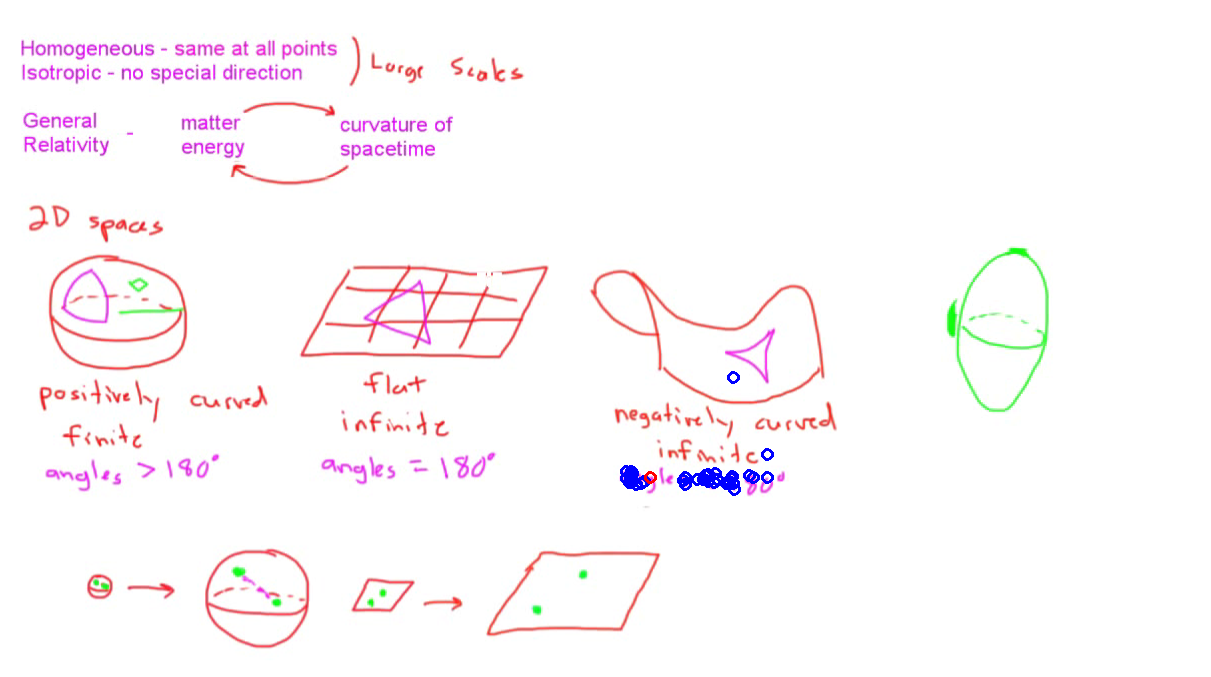 Homogeneous - same at all points
Isotropic - no special direction
Large Scales
General
Relativity -
matter
energy
curvature of
spacetime
2D spaces
positively curved
finite
angles > 180°
flat
infinite
angles = 180°
negatively curved
infinite